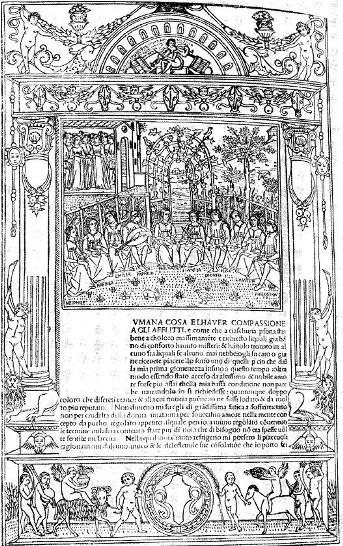 VMANA COSA ELHAVER COMPASSIONE
A GLI AFFLITTI. e come che a ciaschuna pſona ſtia
bene a choloro maſſimamẽte e richieſto liquali gia hã
no di conforto havuto miſtieri & hãnolo trovato in al
cuno fra liquali ſe alcuno mai nebbe o gli fu caro o gia
ne ricevete piacere io ſono uno di quelli. pio che dal
la mia prima giovenezza infino a queſto tempo oltra
modo eſſendo ſtato acceſo da altiſſimo & nobile amo
re forſe piu aſſai che alla mia baſſa conditione non par
be narrandolo io ſi richiedeſſe quantunque appo
coloro che diſcreti erano & alla cui notitia puẽne io ne fuſſi lodato & da mol
to piu reputato. Non dimeno mi fu egli di grãdiſſima fatica a ſofferire certo
non per crudelta della donna amata ma per ſoverchio amore nella mente con
cepto da pucho regolato appetito il quale percio a niuno regolato o cõtento
le termine mi laſſava contento ſtare piu di noia che di biſogno nõ era ſpeſſe vol
te ſentire mi facea. Nella qual noia tanto refrigerio mi porſero li piacevoli
ragionamenti dalchuno amico & le